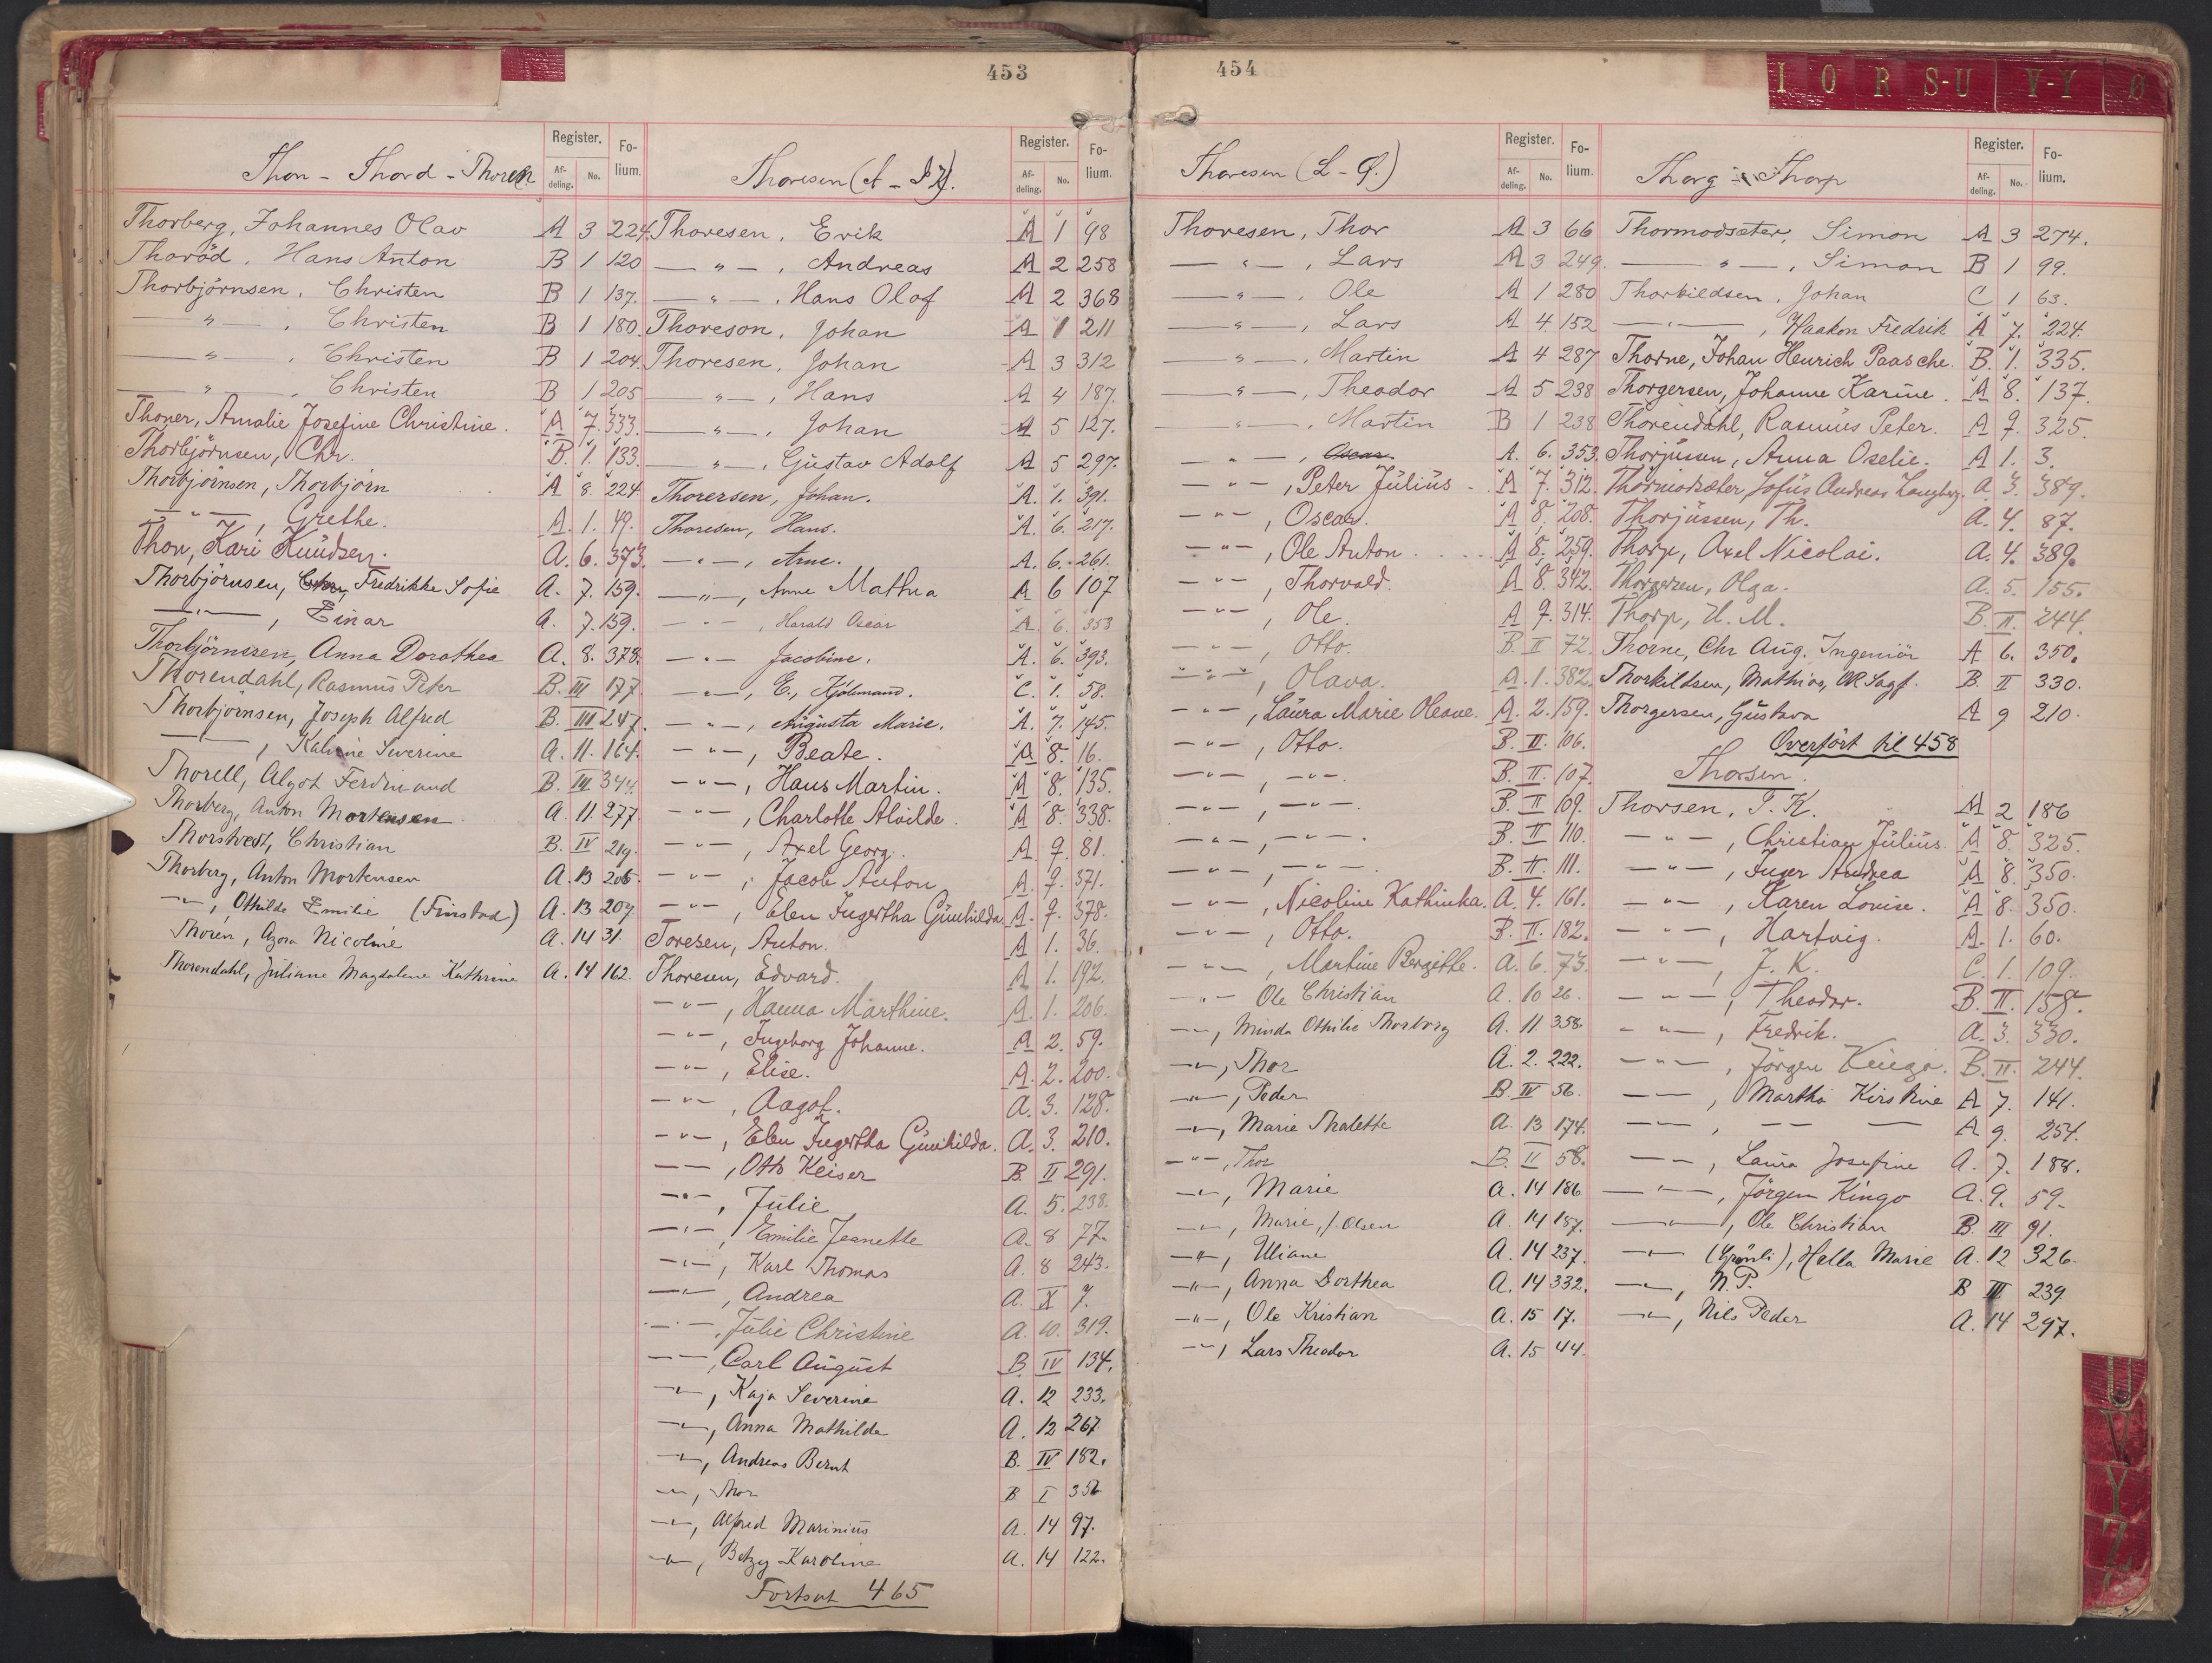 453
Thon - Thord - Thoren.
Register. Folium.
Afdeling. No.
Thorberg, Johannes Olav A 3 224
Thoröd, Hans Anton B 1 120
Thorbjörnsen, Christen B 1 137.
— " —, Christen B 1 180
— " —, Christen B 1 204
— " —, Christen B 1 205
Thoner, Amalie Josefine Christine. A 7. 333.
Thorbjörnsen, Chr. B. 1. 133.
Thorbjörnsen, Thorbjörn A 8. 224
— " —, Grethe. A. 1. 49.
Thon, Kari Knudsen. A. 6. 373.
Thorbjörnsen, Fredrikke Sofie A. 7. 159.
— " —, Einar A. 7. 159.
Thorbjörnssen, Anna Dorothea A. 8. 378.
Thorendahl, Rasmus Peter B. III 177.
Thorbjörnsen, Joseph Alfred B. III 247.
— " —, Katrine Severine A. 11. 164.
Thorell, Algot Ferdinand B. III 344.
Thorberg, Anton Mortensen A. 11. 277.
Thorstvedt, Christian B. IV 219.
Thorberg, Anton Mortensen A. 13 206.
— " —, Othilde Emilie (Finstad) A. 13 209
Thorén, Agora Nicoline A. 14 31.
Thorendahl, Juliane Magdalene Kathrine A. 14 162.
Thoresen (A - K).
Register. Folium.
Afdeling. No.
Thoresen, Erik A 1 98
— " —, Andreas A 2 258
— " —, Hans Olof A 2 368
Thoreson, Johan A 1 211
Thoresen, Johan A 3 312
— " —, Hans A 4 187.
— " —, Johan A 5 127.
— " —, Gustav Adolf A 5 297.
Thorersen, Johan. A. 1. 391.
Thoresen, Hans. A. 6. 217.
— " —, Arne. A. 6. 261.
— " —, Anne Mathea A 6 107
— " —, Harald Oscar A. 6. 353
— " — Jacobine. A. 6. 393.
— " —, E., Kjölemand. C. 1. 58.
— " —, Augusta Marie. A. 7. 145.
— " —, Beate. A 8. 16.
— " —, Hans Martin. A 8. 135.
— " —, Charlotte Alvilde. A 8. 338.
— " —, Axel Georg. A 9. 81.
— " —, Jacob Anton A. 9. 371.
— " —, Elen Ingertha Gunhilda A. 9. 378.
Toresen, Anton. A 1. 36.
Thoresen, Edvard. A 1. 192.
— " —, Hanna Marthine. A. 1. 206.
— " —, Ingeborg Johanne. A 2. 59.
— " —, Elise. A. 2. 200.
— " —, Aagot. A. 3. 128.
— " —, Elen Ingertha Gunhilda. A. 3. 210.
— " —, Otto Keiser B. II 291.
— " —, Julie A. 5. 238.
— " —, Emilie Jeanette A. 8 77.
— " —, Karl Thomas A. 8 243.
— " —, Andrea A. X 7.
— " —, Julie Christine A. 10. 319.
— " —, Carl August B IV 134.
— " —, Kaja Severine A. 12 233.
— " —, Anna Mathilde A. 12 267
— " —, Andreas Bernt B. IV 182.
— " —, Thor B I 356
— " —, Alfred Marinius A. 14 97.
— " —, Betzy Karoline A. 14 122.
Fortsat 465
454
I O R S-U V-Y Ø
Thoresen (L - Ø.)
Register. Folium.
Afdeling. No.
Thoresen, Thor A 3 66
— " —, Lars A 3 249.
— " —, Ole A 1 280
— " —, Lars A 4 152
— " —, Martin A 4 287
— " —, Theodor A 5 238
— " —, Martin B 1 238
— " —, Oscar. A. 6. 353.
— " —, Peter Julius A 7. 312.
— " —, Oscar. A 8. 208.
— " —, Ole Anton A 8. 259.
— " —, Thorvald. A 8. 342.
— " —, Ole. A 9. 314.
— " —, Otto. B. II 72.
— " —, Olava. A. 1. 382.
— " —, Laura Marie Oleane. A. 2. 159.
— " —, Otto. B. II. 106.
— " —, — " —. B. II. 107.
— " —, — " —. B. II 109.
— " —, — " —. B. II 110.
— " —, — " —. B. II. 111.
— " —, Nicoline Kathinka. A. 4. 161.
— " —, Otto. B. II. 182.
— " —, Martine Bergitte. A. 6. 73.
— " — Ole Christian A. 10 26.
— " —, Minda Othilie Thorborg A. 11 358.
— " —, Thor A. 2. 222.
— " —, Peder B. IV 56.
— " —, Marie Thalette A. 13 174.
— " —, Thor B. II 58.
— " —, Marie A. 14 186
— " —, Marie, f. Olsen A. 14 187.
— " —, Uliane A. 14 237.
— " —, Anna Dorthea A. 14 332.
— " —, Ole Kristian A. 15 17.
— " —, Lars Theodor A. 15 44.
Thorg - Thorp
Register. Folium.
Afdeling. No.
Thormodsæter, Simon A 3 274.
— " —, Simon B 1 99.
Thorkildsen, Johan C 1 63.
— " —, Haakon Fredrik A 7. 224.
Thorne, Johan Henrich Paasche. B. 1. 335.
Thorgersen, Johanne Karine. A 8. 137.
Thorendahl, Rasmus Peter. A 9. 325.
Thorjussen, Anna Oselie. A 1. 3.
Thormodsæter, Jofus Andreas Langberg. A 3. 389.
Thorjussen, Th. A. 4. 87.
Thorp, Axel Nicolai. A. 4. 389.
Thorgersen, Olga. A. 5. 155.
Thorp, U. M. B. II. 244.
Thorne, Chr Aug. Ingeniör A 6. 350.
Thorkildsen, Mathias, OR Sagf. B. II 330.
Thorgersen, Gustava A 9 210.
Overført til 458
Thorsen.
Thorsen, P. K. A 2 186
— " —, Christian Julius. A 8. 325.
— " —, Inger Andrea A 8. 350.
— " —, Karen Lovise. A 8. 350.
— " —, Hartvig. A. 1. 60.
— " —, J. K. C. 1. 109.
— " —, Theodor. B. II. 158.
— " —, Fredrik. A. 3. 330.
— " —, Jörgen Kingo. B. II. 244.
— " —, Martha Kirstine A 7. 141.
— " —, — — — A 9. 254.
— " —, Laura Josefine A. 7. 188.
— " —, Jörgen Kingo A. 9. 59.
— " —, Ole Christian B. III 91.
— " — (Grönli), Hella Marie A. 12 326.
— " —, N. P. B III 239
— " —, Nils Peder A. 14 297.
U
V
Y
Z